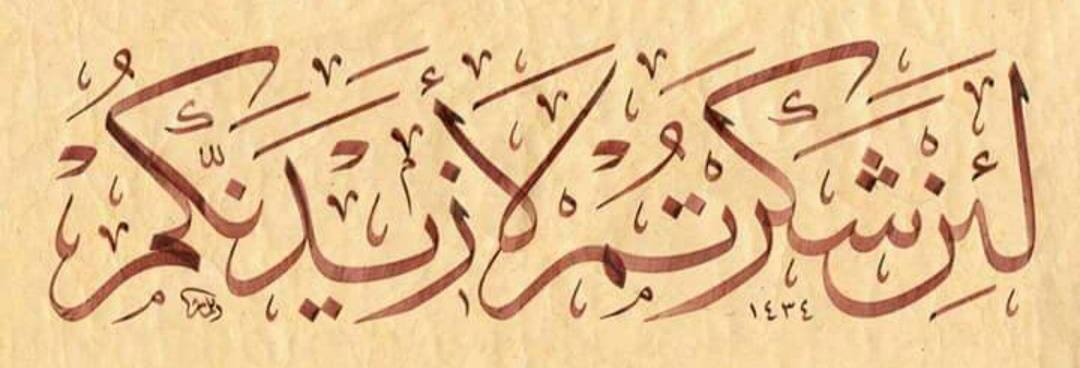 لَئِنْ شَكَرْتُمْ لَأَزِيدَنَّكُمْ
١٤٣٤